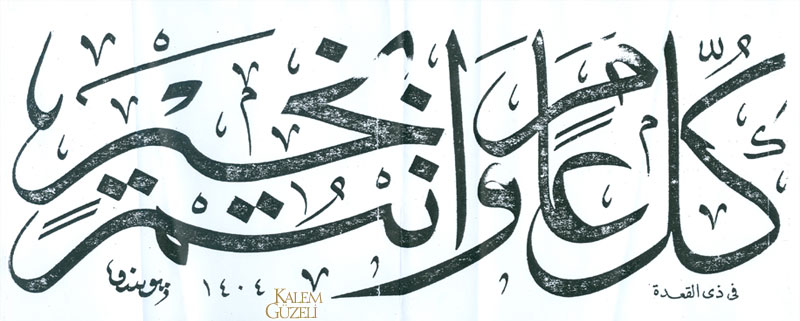 كُلُّ عَامٍ وَأَنْتُمْ بِخَيْرٍ
في ذى القعدة
١٤٠٤
KALEM
GÜZELİ